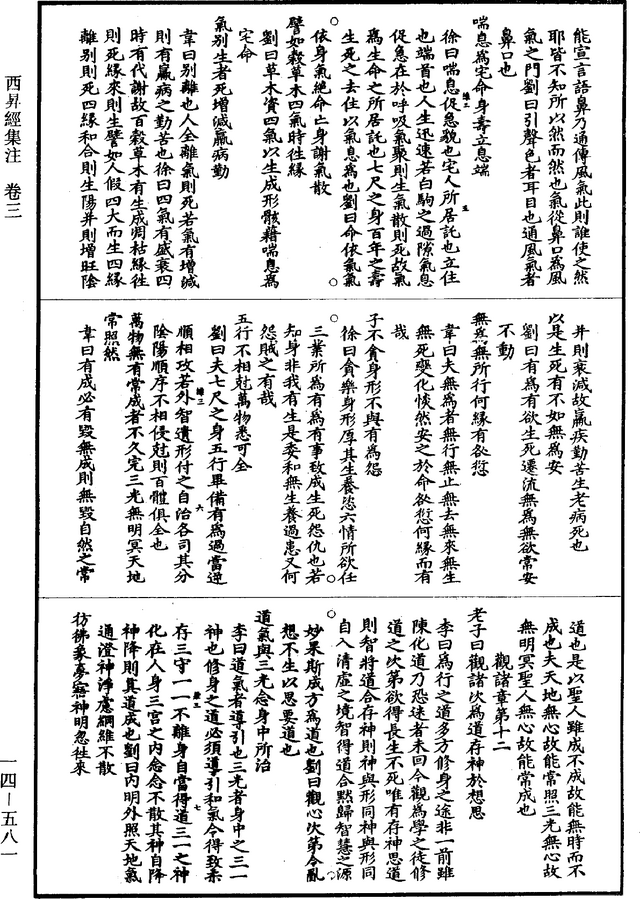 西昇經集注　卷三
能宣言語鼻乃通傳風氣此則誰使之然
耶皆不知所以然而然也氣從鼻口爲風
氣之門劉曰引聲色者耳目也通風氣者
鼻口也
喘息爲宅命身壽立息端
徐曰喘息促急貌也宅人所居託也立住
也端首也人生迅速若白駒之過隙氣息
促急在於呼吸氣聚則生氣散則死故氣
爲生命之所居託也七尺之身百年之壽
生死之去住以氣息爲也劉曰命依氣氣
依身氣絶命亡身謝氣散
譬如穀草木四氣時往緣
劉曰草木資四氣以生成形骸藉喘息爲
宅命
氣别生者死增減羸病勤
韋曰别離也人全離氣則死若氣有增減
則有羸病之勤苦也徐曰四氣有盛衰四
時有代謝故百穀草木有生成凋枯緣往
則死緣來則生譬如人假四大而生四緣
離别則死四緣和合則生陽并則增旺陰
并則衰減故羸疾勤苦生老病死也
以是生死有不如無爲安
劉曰有爲有欲生死遷流無爲無欲常安
不動
無爲無所行何緣有咎愆
韋曰夫無爲者無行無止無去無來無生
無死變化惔然安之於命咎愆何緣而有
哉
子不貪身形不與有爲怨
徐曰貪樂身形厚其生養恣六情所欲任
三業所爲有爲有事致成生死怨仇也若
知身非我有生是委和無生養過患又何
怨賊之有哉
五行不相尅萬物悉可全
劉曰夫七尺之身五行畢備有爲過當逆
順相攻若外智遺形付之自治各司其分
陰陽順序不相侵尅則百體俱全也
萬物無有常成者不久完三光無明冥天地
常照然
韋曰有成必有毀無成則無毀自然之常
道也是以聖人雖成不成故能無時而不
成也夫天地無心故能常照三光無心故
無明冥聖人無心故能常成也
觀諸章第十二
老子曰觀諸次爲道存神於想思
李曰爲行之道多方修身之途非一前雖
陳化道乃恐迷者未回今觀爲學之徒修
道之次第欲得長生不死唯有存神思道
則智將道合存神則神與形同神與形同
自入清虛之境智得道合默歸智慧之源
妙果斯成方爲道也劉曰觀心次第令亂
想不生以思要道也
道氣與三光念身中所治
李曰道氣者導引也三光者身中之三一
神也修身之道必須導引和氣令得致柔
存三守一一不離身自當得道三一之神
化在人身三宫之内念念不散其神自降
神降則真道成也劉曰内明外照天地氣
通澄神淨慮綱維不散
彷彿象夢寤神明忽往來
一四—五八一